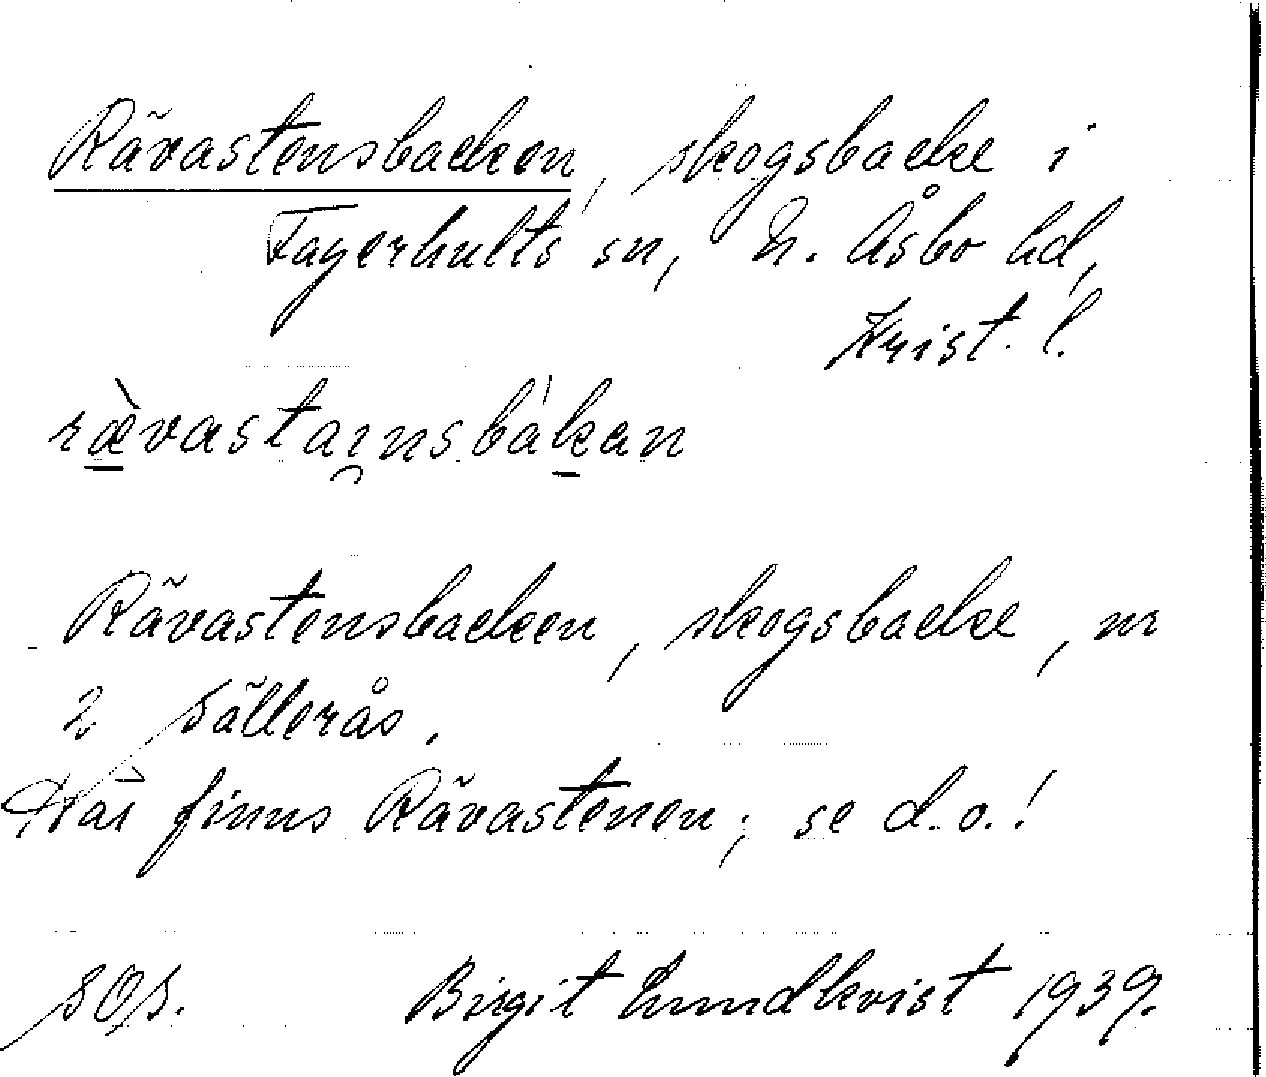 Rävastensbacken, skogsbacke i
Fagerhults sn, N. Åsbo hd,
Krist. l.
ræ̀vastai̯nsbàkan
Rävastensbacken, skogsbacke, nr
2 Sällerås.
Här finns Rävastenen; se d.o.!
SOfs. Birgit Lundkvist 1939.